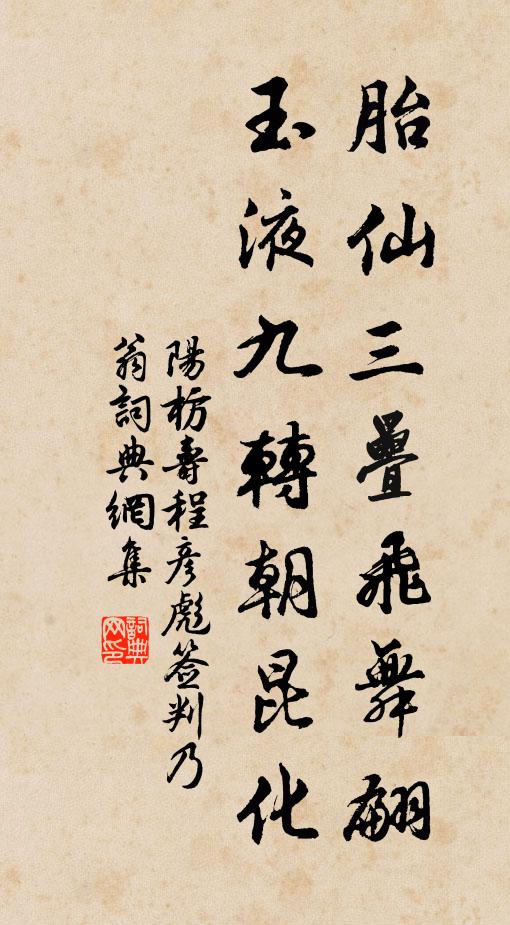 胎仙三疊飛舞翩
玉液九轉朝昆化
陽枋壽程彦彪簽判乃
翁詞典網集
詞典網印